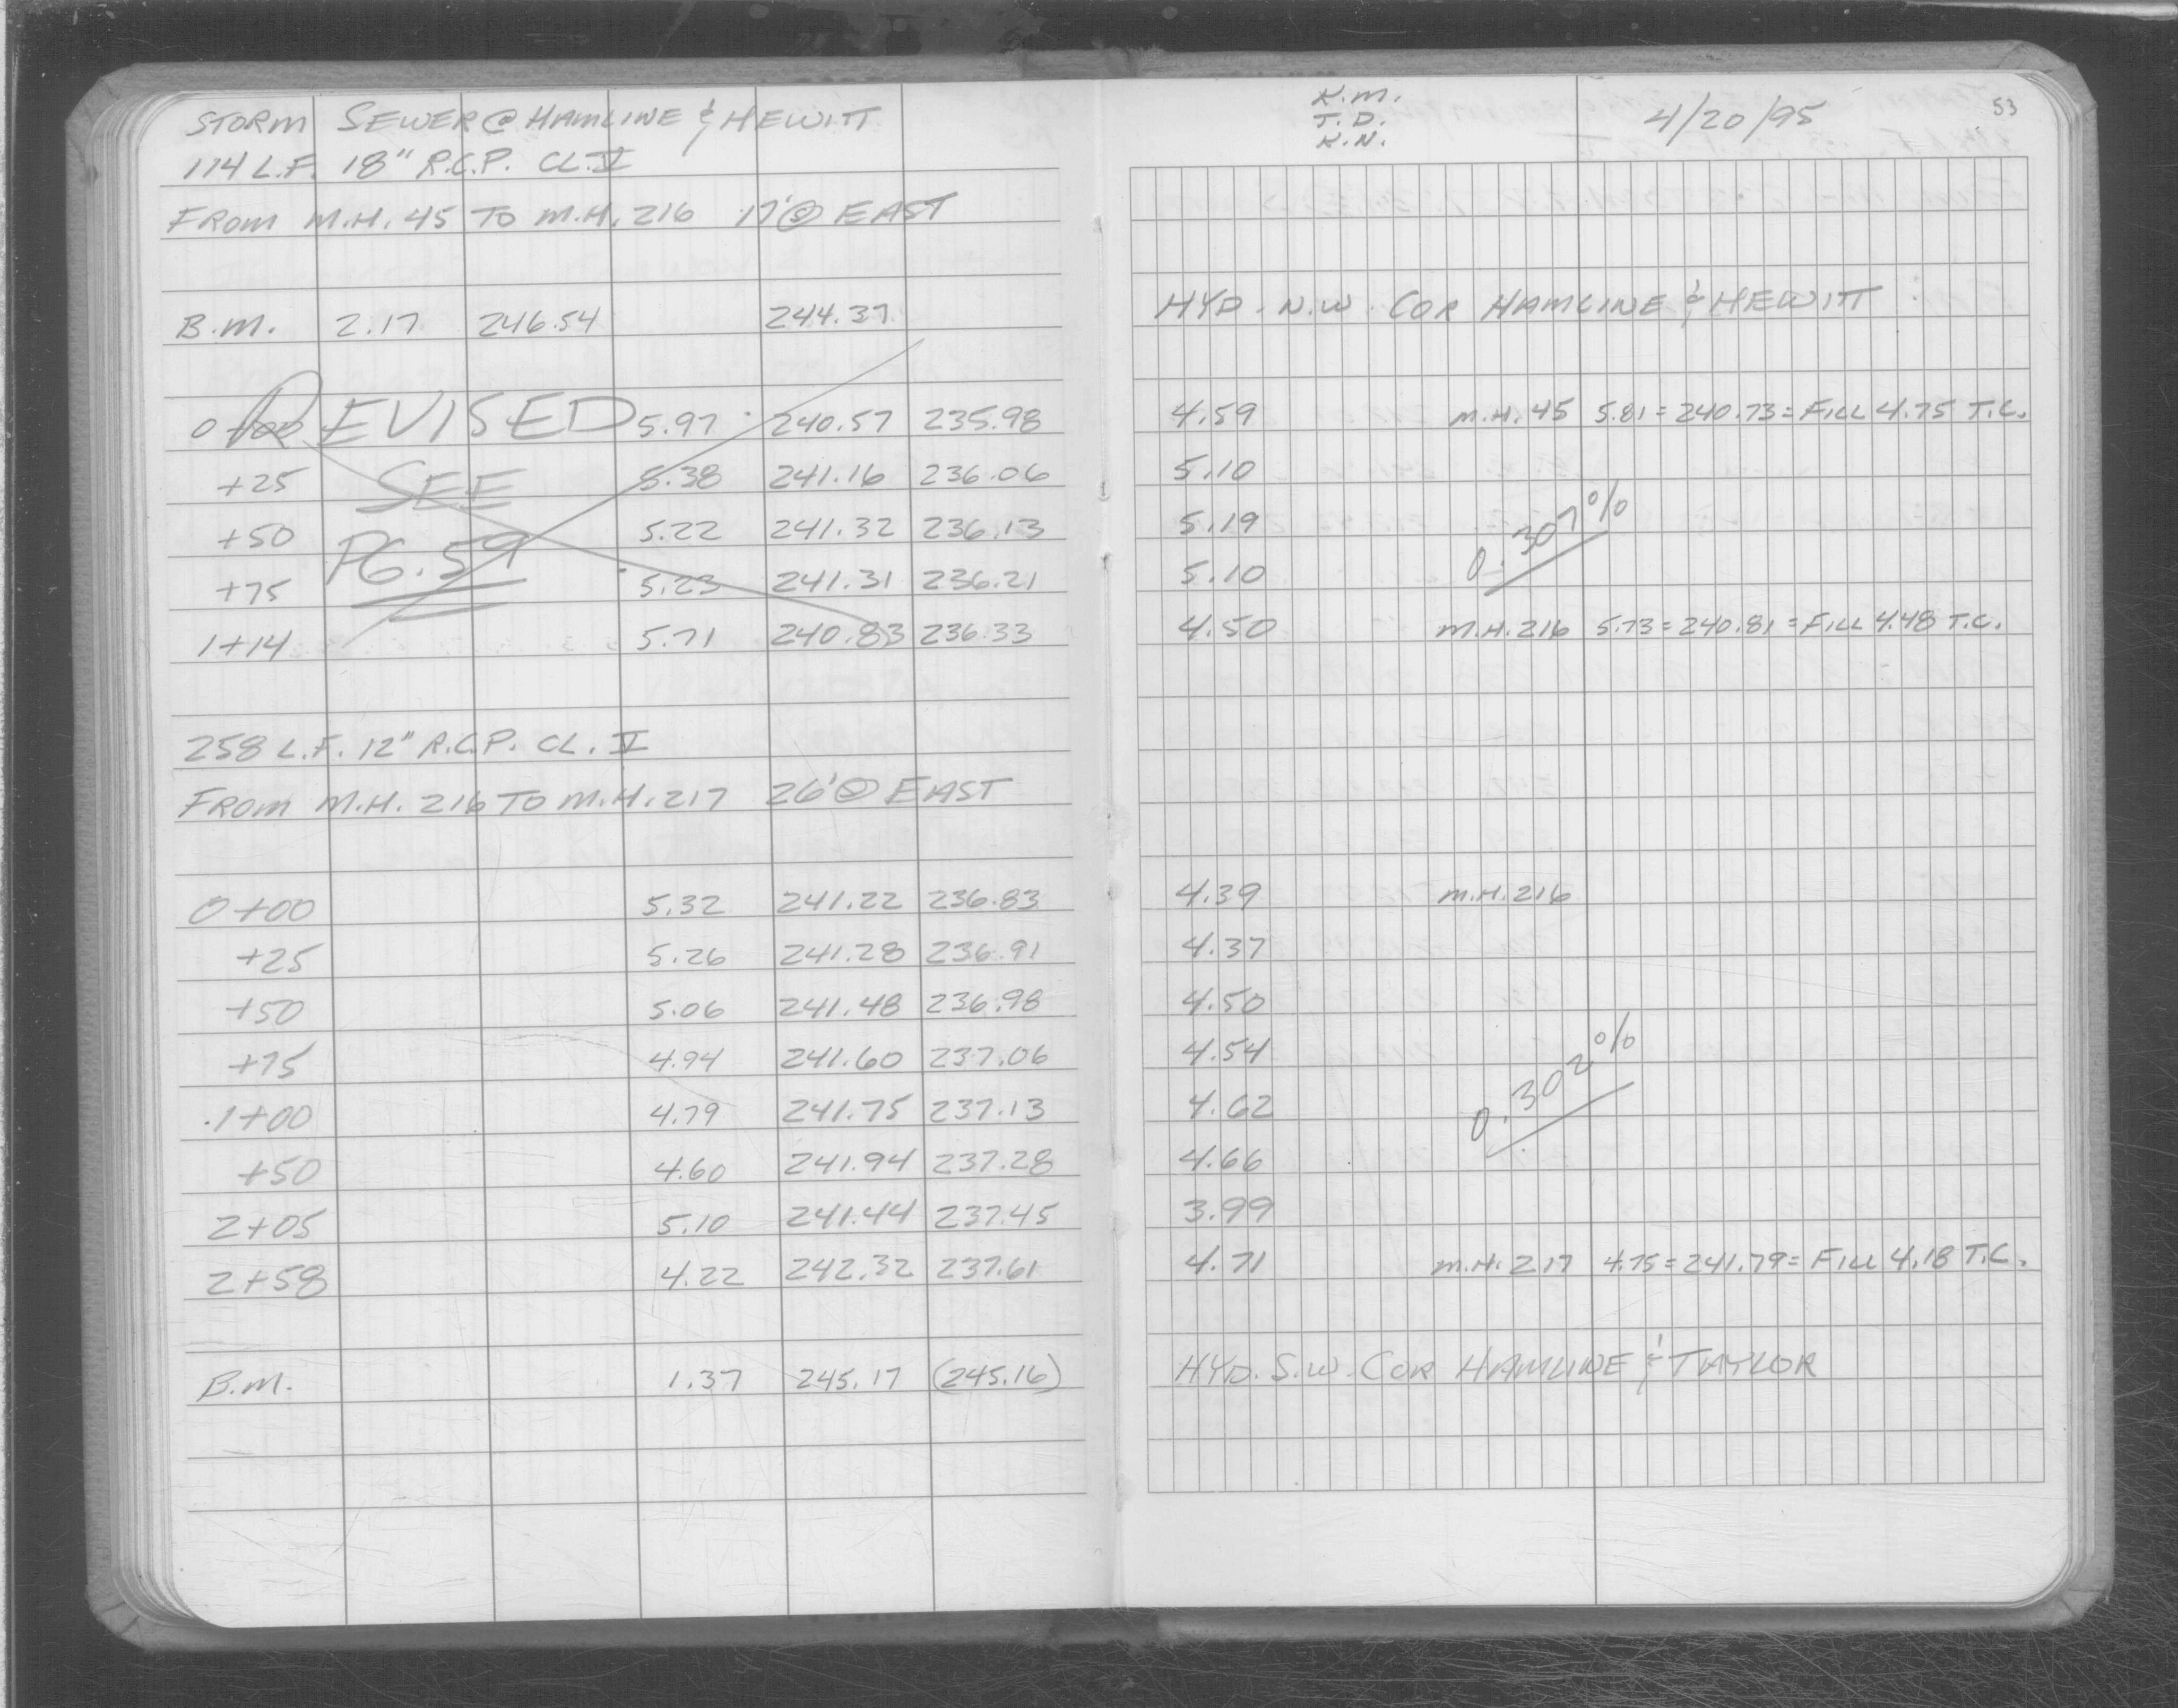 STORM SEWER @ HAMLINE & HEWITT
114 L.F. 18" R.C.P. CL. V
FROM M.H. 45 TO M.H. 216 17' @ EAST
B.M. 2.17 246.54 244.37
REVISED
SEE
PG. 59
0+00 5.97 240.57 235.98
+25 5.38 241.16 236.06
+50 5.22 241.32 236.13
+75 5.23 241.31 236.21
1+14 5.71 240.83 236.33
258 L.F. 12" R.C.P. CL. V
FROM M.H. 216 TO M.H. 217 26' @ EAST
0+00 5.32 241.22 236.83
+25 5.26 241.28 236.91
+50 5.06 241.48 236.98
+75 4.94 241.60 237.06
1+00 4.79 241.75 237.13
+50 4.60 241.94 237.28
2+05 5.10 241.44 237.45
2+58 4.22 242.32 237.61
B.M. 1.37 245.17 (245.16)
K.M.
T.D.
K.N.
4/20/95
53
HYD. N.W. COR HAMLINE & HEWITT
4.59 M.H. 45 5.81 = 240.73 = FILL 4.75 T.C.
5.10
5.19
0.307%
5.10
4.50 M.H. 216 5.73 = 240.81 = FILL 4.48 T.C.
4.39 M.H. 216
4.37
4.50
4.54
0.302%
4.62
4.66
3.99
4.71 M.H. 217 4.75 = 241.79 = FILL 4.18 T.C.
HYD. S.W. COR HAMLINE & TAYLOR